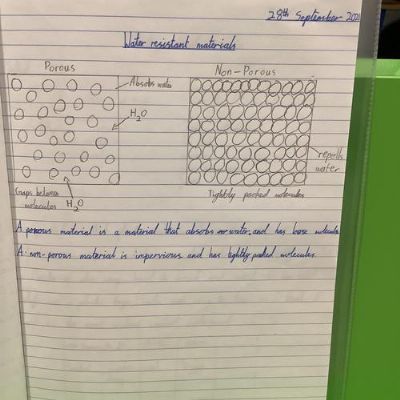 28th September 202
Water resistant materials
Porous
Non-Porous
Absorbs water
H2O
repells
water
Gaps between
molecules
H2O
Tightly packed molecules
A porous material is a material that absorbs water, and has loose molecules
A non-porous material is impervious and has tightly packed molecules